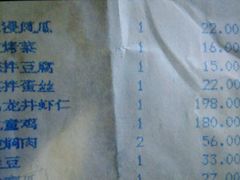 凤瓜 1 22.00
烤菜 1 16.00
拌豆腐 1 15.00
拌蛋丝 1 22.00
龙井虾仁 1 198.00
童鸡 1 180.00
焖肉 2 56.00
豆 1 33.00
1 27.00